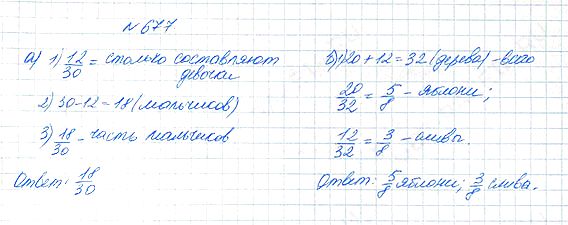 №677.
а) 1) 12/30 = столько составляют
девочки
2) 30-12=18 (мальчиков)
3) 18/30 - часть мальчиков
Ответ: 18/30
б) 1) 20+12=32 (дерева) - всего
20/32 = 5/8 - яблони;
12/32 = 3/8 - сливы.
Ответ: 5/8 яблони; 3/8 слива.